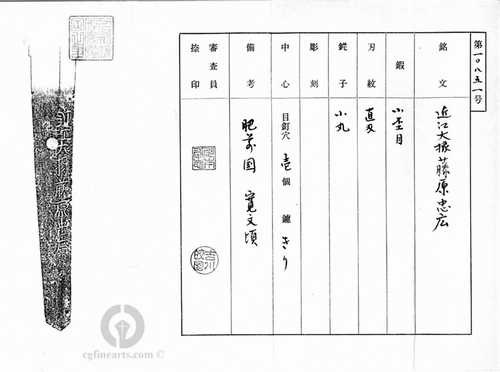 第一〇八五一号
銘文 近江大掾藤原忠広
鍜 小杢目
刃紋 直刃
鋩子 小丸
彫刻
中心 目釘穴 壱個 鑢 きり
備考 肥前国 寛文頃
審査員
捺印
cgfinearts.com ©